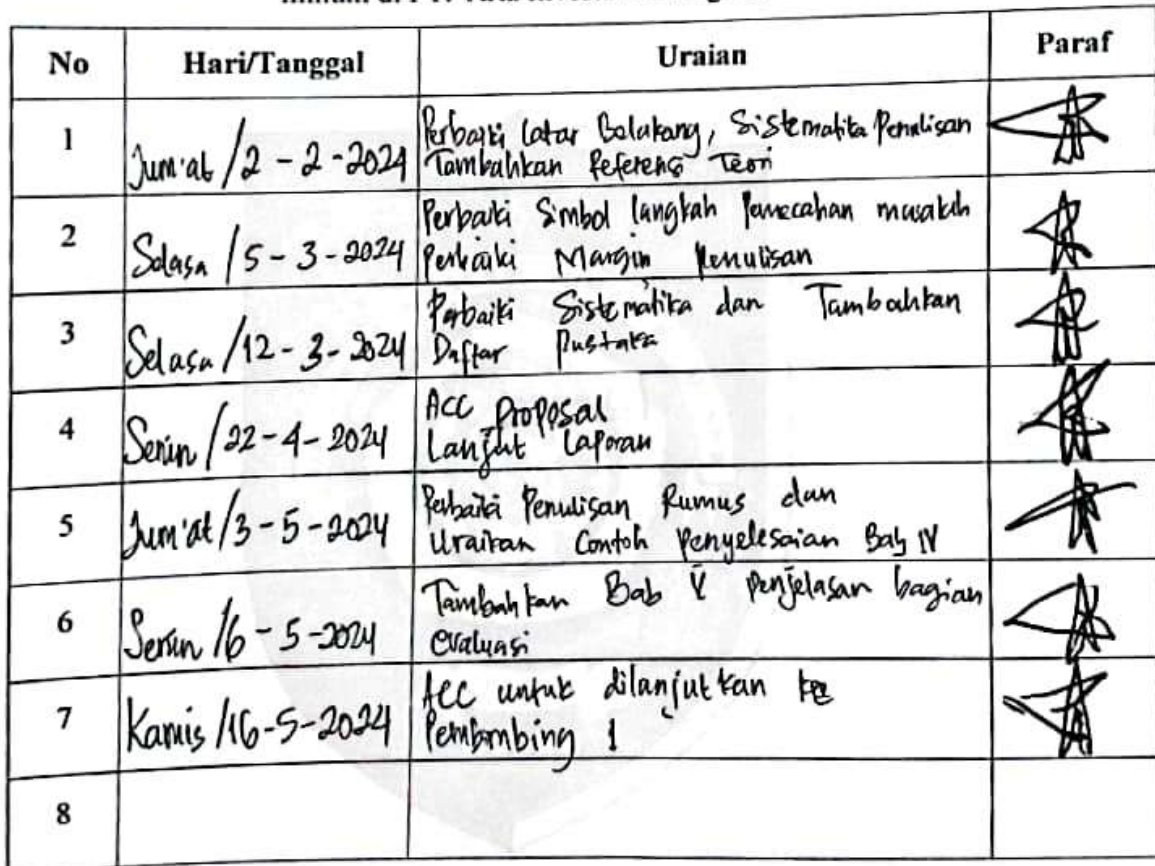 No Hari/Tanggal Uraian Paraf
1 Jum'at / 2 - 2 - 2024 Perbaiki Latar Belakang, Sistematika Penulisan
Tambahkan Referensi Teori
2 Selasa / 5 - 3 - 2024 Perbaiki Simbol langkah Pemecahan masalah
Perbaiki Margin Penulisan
3 Selasa / 12 - 3 - 2024 Perbaiki Sistematika dan Tambahkan
Daftar Pustaka
4 Senin / 22 - 4 - 2024 ACC proposal
Lanjut Laporan
5 Jum'at / 3 - 5 - 2024 Perbaiki Penulisan Rumus dan
Uraikan Contoh Penyelesaian Bab IV
6 Senin / 6 - 5 - 2024 Tambahkan Bab V penjelasan bagian
evaluasi
7 Kamis / 16 - 5 - 2024 ACC untuk dilanjutkan ke
Pembimbing 1
8